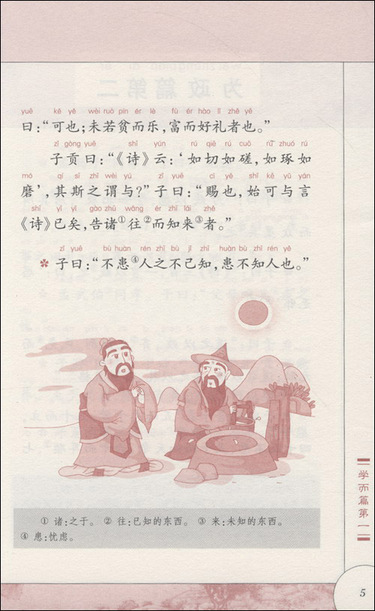 yuē kě yě wèi ruò pín ér lè fù ér hào lǐ zhě yě
曰：“可也；未若贫而乐，富而好礼者也。”
zǐ gòng yuē shī yún rú qiē rú cuō rú zhuó rú
子贡曰：“《诗》云：‘如切如磋，如琢如
mó qí sī zhī wèi yú zǐ yuē cì yě shǐ kě yǔ yán
磨’，其斯之谓与？”子曰：“赐也，始可与言
shī yǐ yǐ gào zhū wǎng ér zhī lái zhě
《诗》已矣，告诸①往②而知来③者。”
zǐ yuē bù huàn rén zhī bù jǐ zhī huàn bù zhī rén yě
子曰：“不患④人之不己知，患不知人也。”
①诸：之于。 ②往：已知的东西。 ③来：未知的东西。
④患：忧虑。
学而篇第一
5